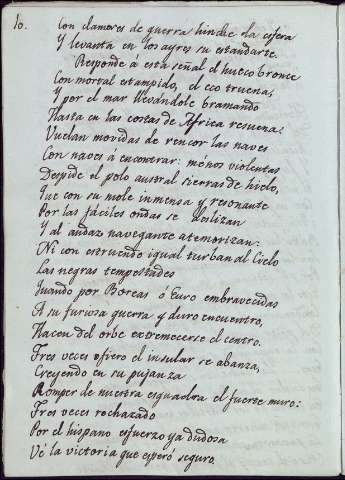 10.
Con clamores de guerra hinche la esfera
Y levanta en los ayres su estandarte.
Responde à esta señal el hueco bronce
Con mortal estampido, el eco truena,
Y por el mar llevandole bramando
Hasta en las costas de Africa resuena:
Vuelan movidas de rencor las naves
Con naves à encontrar: ménos violentas
Despide el polo austral sierras de hielo,
Que con su mole inmensa y resonante
Por las fáciles ondas se deslizan
Y al audaz navegante atemorizan:
Ni con estruendo igual turban al Cielo
Las negras tempestades
Quando por Boreas ó Euro embravecidas
A su furiosa guerra y duro encuentro,
Hacen del orbe extremecerse el centro.
Tres veces fiero el insular se abanza,
Creyendo en su pujanza
Romper de nuestra esquadra el fuerte muro:
Tres veces rechazado
Por el hispano esfuerzo ya dudosa
Vé la victoria que esperó seguro.